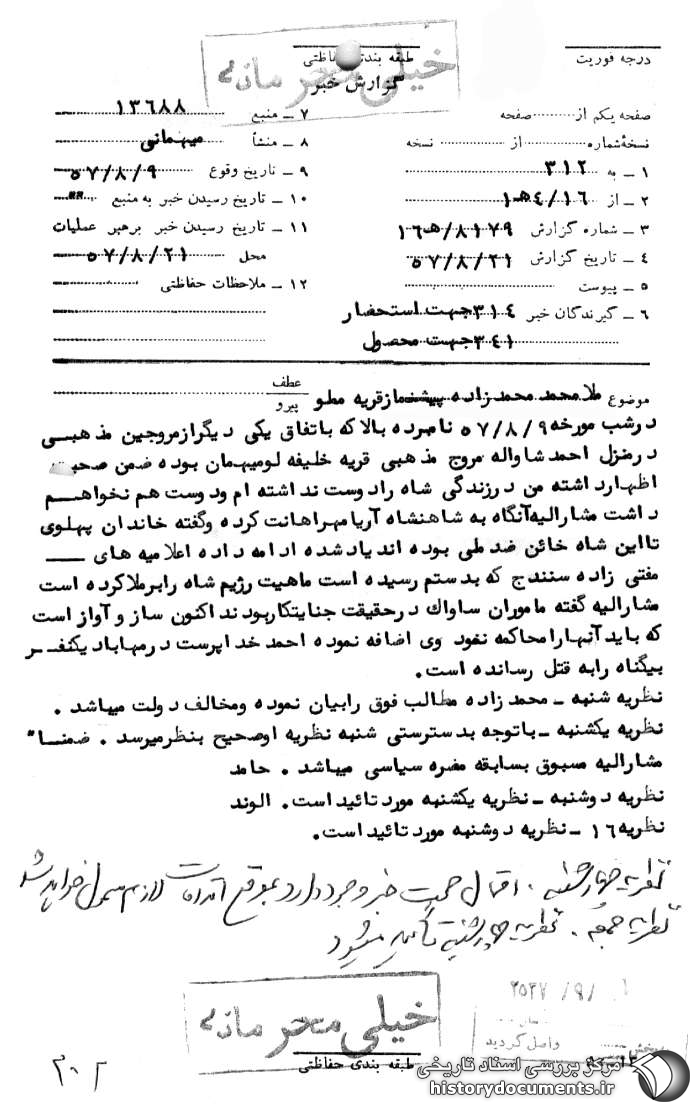 درجه فوریت
طبقه بندی حفاظتی
خیلی محرمانه
گزارش خبر
صفحه یکم از صفحه
نسخهٔ شماره از نسخه
۱ ــ به ۳۱۲
۲ ــ از ۱۶/۴هـ۱
۳ ــ شماره گزارش ۸۱۷۹/هـ۱۶
۴ ــ تاریخ گزارش ۵۷/۸/۲۱
۵ ــ پیوست
۶ ــ گیرندگان خبر ۳۱۴جهت استحضار
۳۴۱جهت محصول
۷ ــ منبع ۱۳۶۸۸
۸ ــ منشأ میهمانی
۹ ــ تاریخ وقوع ۵۷/۸/۹
۱۰ ــ تاریخ رسیدن خبر به منبع "
۱۱ ــ تاریخ رسیدن خبر برهبر عملیات
محل ۵۷/۸/۲۱
۱۲ ــ ملاحظات حفاظتی
موضوع ملامحمد محمدزاده پیشنمازقریه مطو عطف
پیرو
درشب مورخه ۵۷/۸/۹ نامبرده بالا که باتفاق یکی دیگرازمروجین مذهبی
درمنزل احمدشاواله مروج مذهبی قریه خلیفه لومیهمان بوده ضمن صحبت
اظهارداشته من درزندگی شاه رادوست نداشته ام ودوست هم نخواهم
داشت مشارالیه‌آنگاه به شاهنشاه آریامهراهانت کرده وگفته خاندان پهلوی
تااین شاه خائن ضدملی بوده اند یادشده ادامه داده اعلامیه های
مفتی زاده سنندج که بدستم رسیده است ماهیت رژیم شاه رابرملاکرده است
مشارالیه گفته ماموران ساواک درحقیقت جنایتکاربودند اکنون ساز و آواز است
که باید آنهارامحاکمه نمود وی اضافه نموده احمد خداپرست درمهاباد یکنفر
بیگناه رابه قتل رسانده است.
نظریه شنبه ــ محمدزاده مطالب فوق رابیان نموده ومخالف دولت میباشد .
نظریه یکشنبه ــ باتوجه بدسترستی شنبه نظریه اوصحیح بنظرمیرسد . ضمنا"
مشارالیه مسبوق بسابقه مضره سیاسی میباشد . حامد
نظریه دوشنبه ــ نظریه یکشنبه مورد تائید است. الوند
نظریه۱۶ ــ نظریه دوشنبه مورد تائید است.
نظریه چهارشنبه . احتمال صحت خبر وجود دارد بموقع اقدامات لازم معمول خواهد شد
نظریه جمعه . نظریه چهارشنبه تأیید میشود
۲۵۳۷/۹/
واصل گردید
خیلی محرمانه
طبقه بندی حفاظتی
۳۰۲
مرکز بررسی اسناد تاریخی
historydocuments.ir